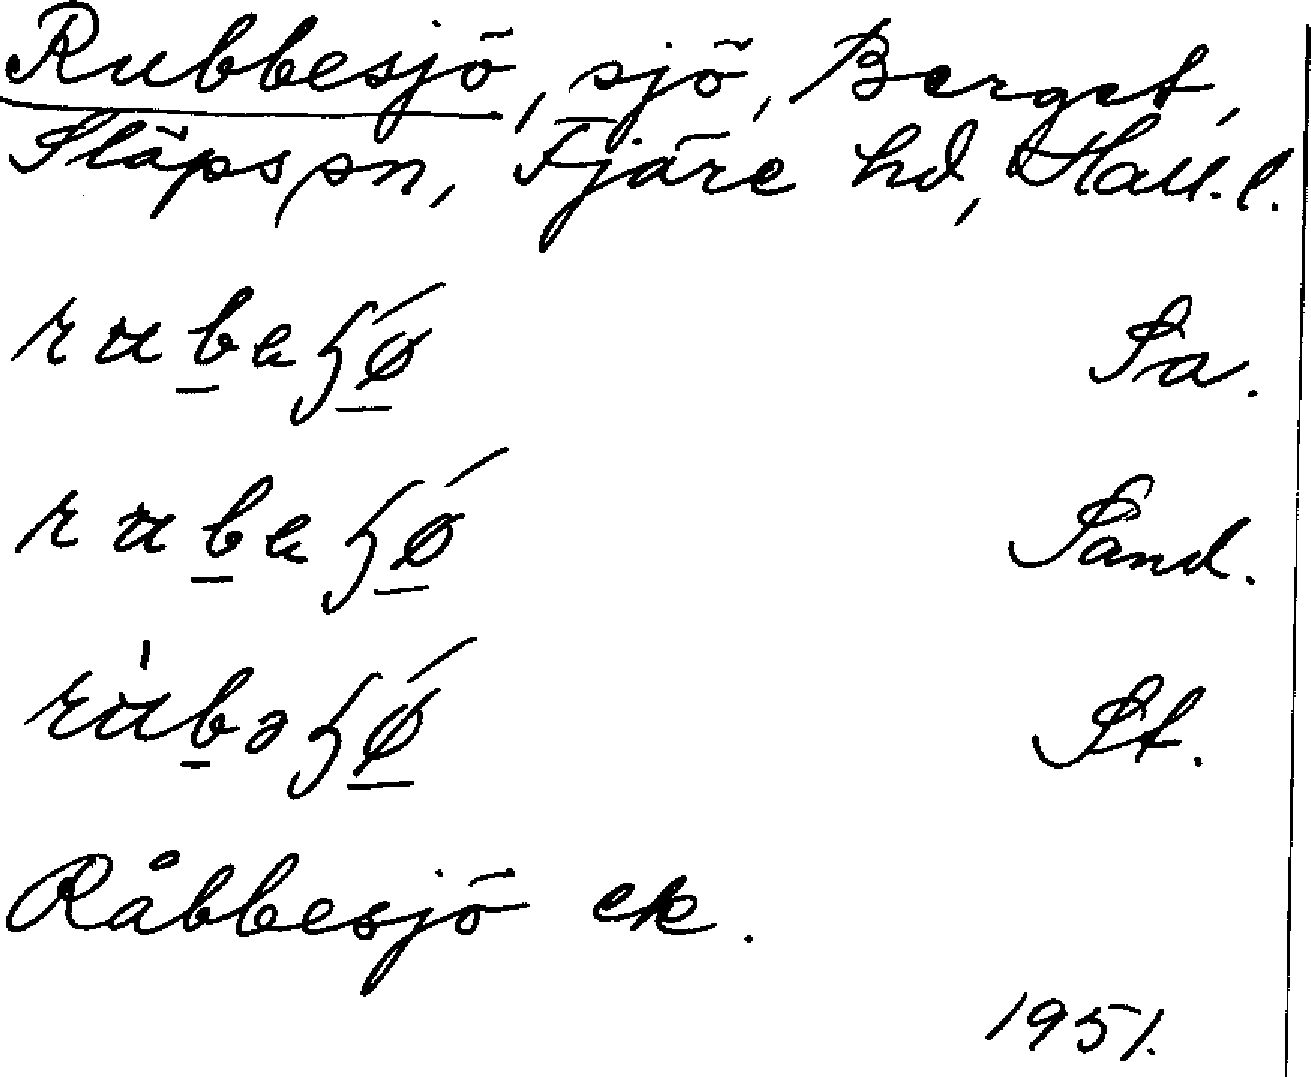 Rubbesjö, sjö, Berget,
Släps sn, Fjäre hd, Hall. l.
rubeʃǿ Sa.
rubeʃǿ Sand.
rùbəʃǿ St.
Råbbesjö ek.
1951.